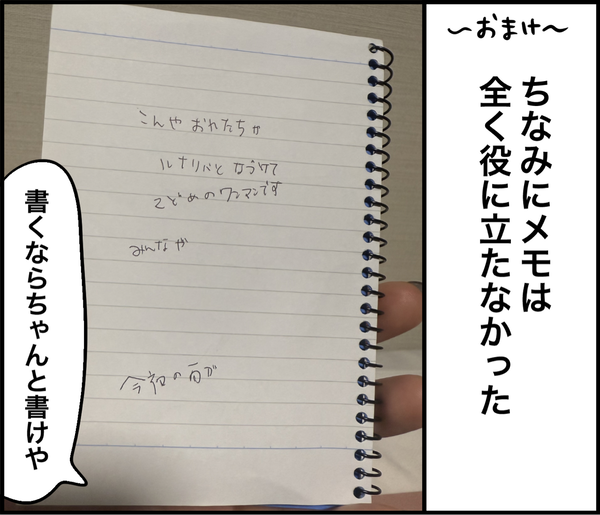 〜おまけ〜
ちなみにメモは
全く役に立たなかった
こんや おれたちが
ルナリバと なづけて
2どめのワンマンです
みんなが
今初の百が
書くならちゃんと書けや